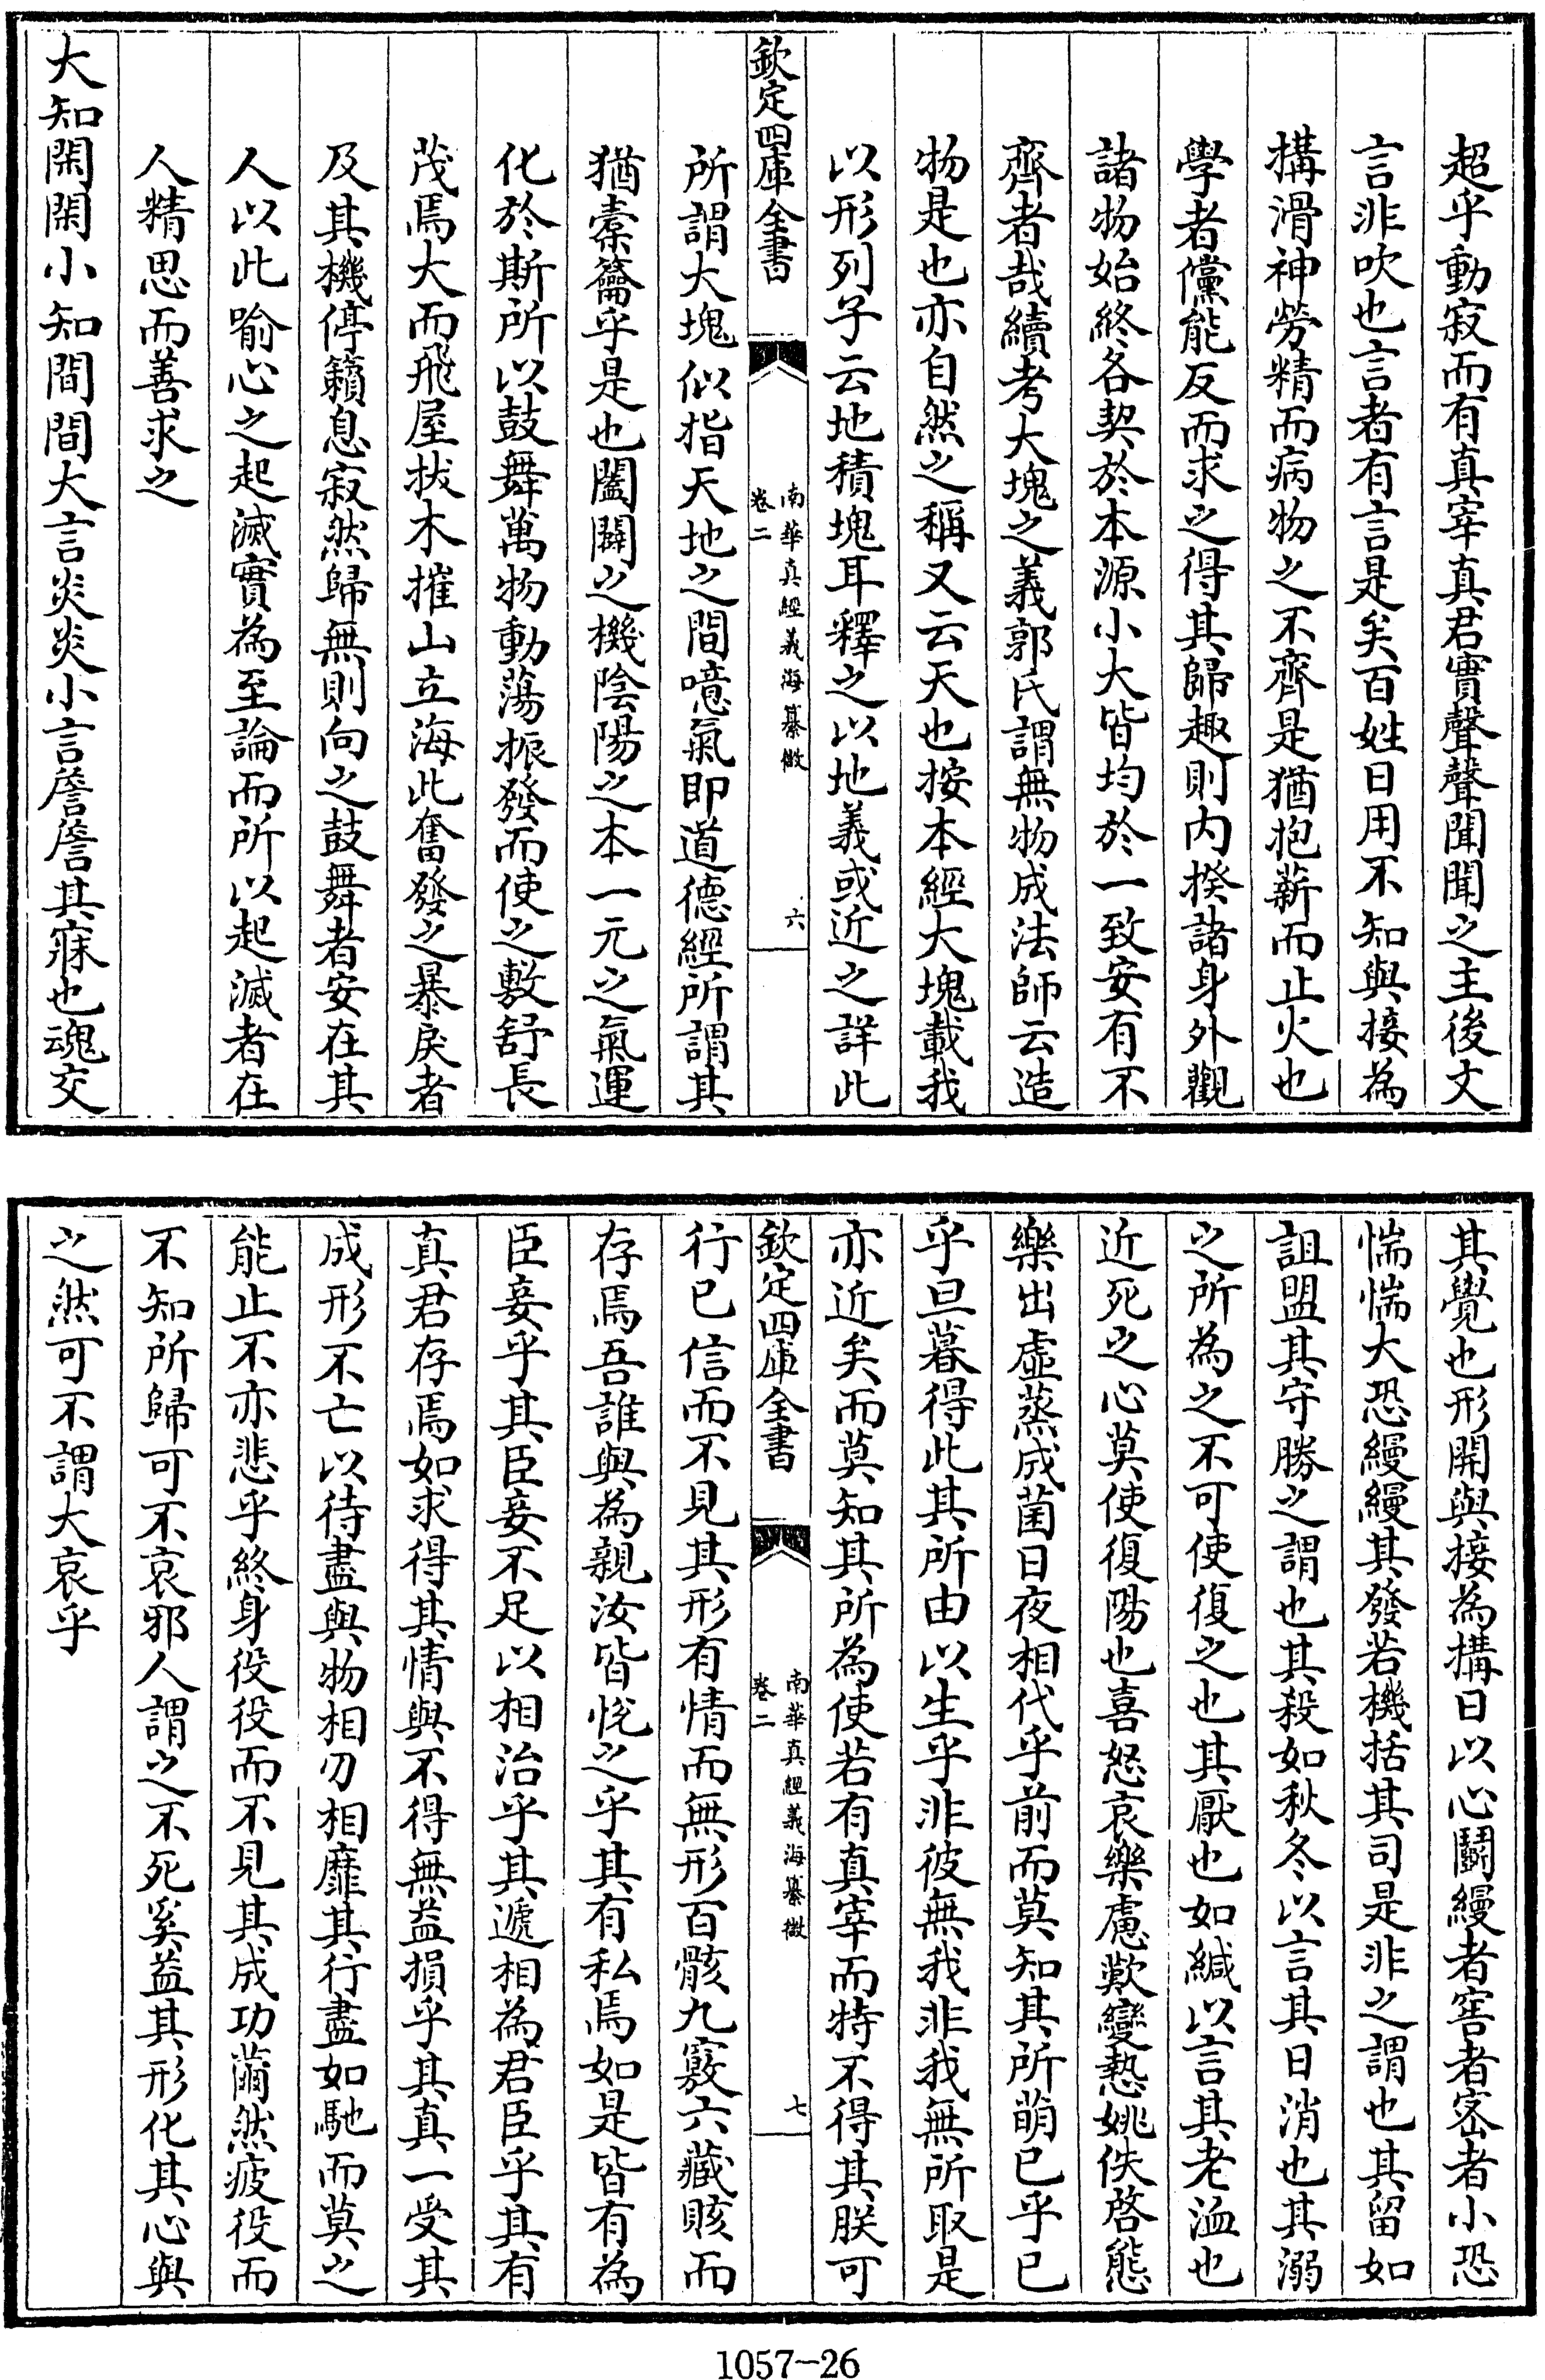 超乎動寂而有真宰真君實聲聲聞聞之主後文
言非吹也言者有言是矣百姓日用不知與接為
搆滑神勞精而病物之不齊是猶抱薪而止火也
學者儻能反而求之得其歸趣則内揆諸身外觀
諸物始終各契於本源小大皆均於一致安有不
齊者哉續考大塊之義郭氏謂無物成法師云造
物是也亦自然之稱又云天也按本經大塊載我
以形列子云地積塊耳釋之以地義或近之詳此
欽定四庫全書
南華真經義海纂微
卷二
六
所謂大塊似指天地之間噫氣即道德經所謂其
猶橐籥乎是也闔闢之機陰陽之本一元之氣運
化於斯所以鼓舞萬物動蕩振發而使之敷舒長
茂焉大而飛屋拔木摧山立海此奮發之暴戾者
及其機停籟息寂然歸無則向之鼓舞者安在其
人以此喻心之起滅實為至論而所以起滅者在
人精思而善求之
大知閑閑小知間間大言炎炎小言詹詹其寐也魂交
其覺也形開與接為搆日以心鬭縵者窖者密者小恐
惴惴大恐縵縵其發若機括其司是非之謂也其留如
詛盟其守勝之謂也其殺如秋冬以言其日消也其溺
之所為之不可使復之也其厭也如緘以言其老洫也
近死之心莫使復陽也喜怒哀樂慮歎變慹姚佚啓態
樂出虛蒸成菌日夜相代乎前而莫知其所萌已乎已
乎旦暮得此其所由以生乎非彼無我非我無所取是
亦近矣而莫知其所為使若有真宰而特不得其朕可
欽定四庫全書
南華真經義海纂微
卷二
七
行已信而不見其形有情而無形百骸九竅六藏賅而
存焉吾誰與為親汝皆悅之乎其有私焉如是皆有為
臣妾乎其臣妾不足以相治乎其遞相為君臣乎其有
真君存焉如求得其情與不得無益損乎其真一受其
成形不亡以待盡與物相刃相靡其行盡如馳而莫之
能止不亦悲乎終身役役而不見其成功薾然疲役而
不知所歸可不哀邪人謂之不死奚益其形化其心與
之然可不謂大哀乎
1057-26